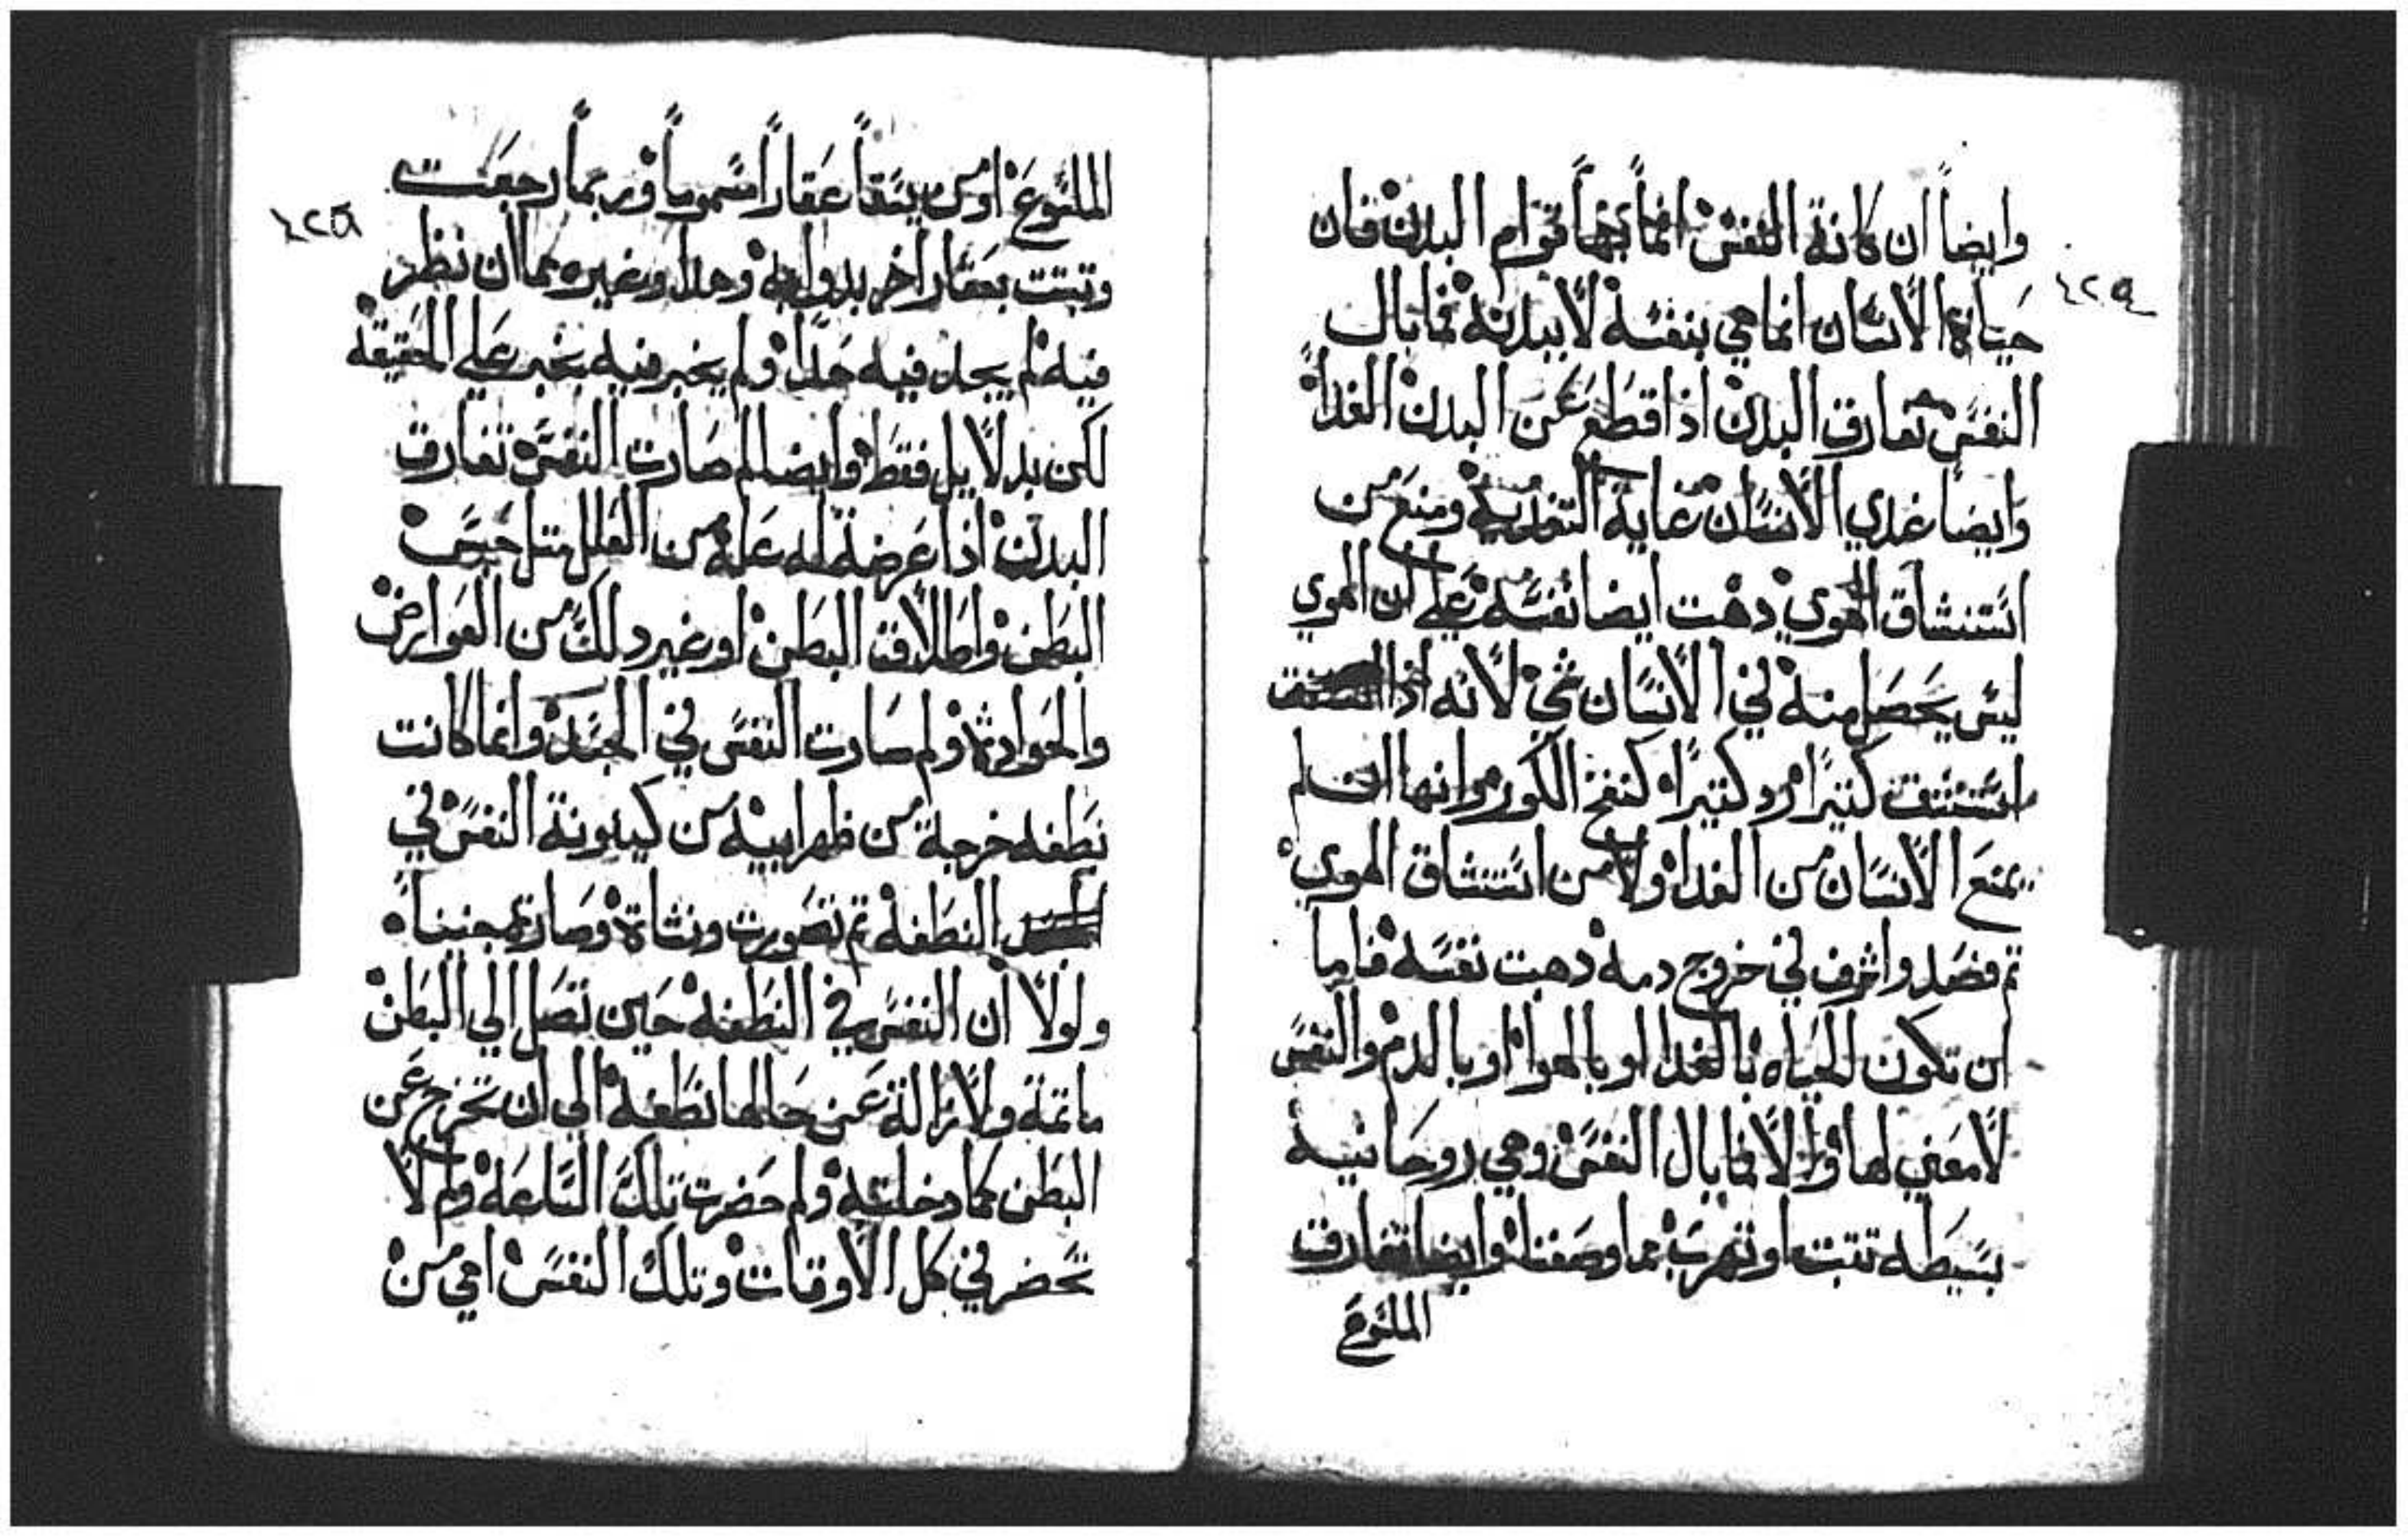 وايضاً ان كانة النفس انما بها قوام البدن فان
٤٢٩
حياة الانسان انما هي بنفسه لا ببدنه فما بال
النفس تفارق البدن اذا قطع عن البدن الغداً
وايضاً غدي الانسان غاية التغدية ومنع من
استنشاق الهوي دهت ايضا نفسه على ان الهوي
ليس يحصل منه في الانسان شي لانه اذا
استنشقت كتيراً رد كتيراً كنفخ الكور وانها ان لم
يمنع الانسان من الغدا ولا من استنشاق الهوي
تم فصد واشرف في خروج دمه دهبت نفسه فاما
ان تكون الحياه بالغدا او بالهوا او بالدم والنفس
لا معني لها والا فما بال النفس وهي روحانية
بسيطه تتبت او تهرب مما وصفنا وايضا تفارق
الملسوع
الملسوع او من يسقا عقاراً مسموماً وربماً رجعت
٤٢٨
وتبتت بعقار اخر بدوايه وهدا وغيره مما ان نظر
فيه لم يجد فيه حداً ولم يخبر فيه بخبر على الحقيقه
لكن بدلايل فقط وايضا لم صارت النفس تفارق
البدن اذا عرضة له علة من العلل متل حبس
البطن واطلاق البطن او غير دلك من العوارض
والحوادث ولم صارت النفس في الجسد وانما كانت
نطفه خرجة من ظهر ابيه من كينونة النفس في
النطفه تم تصورت ونشاة وصارت جنيناً
ولولا ان النفس في النطفه حين تصل الي البطن
ماتة ولا زالة عن حالها نطفه الي ان تخرج عن
البطن كما دخلته ولم حضرت تلك الساعه ولم لا
تحضر في كل الاوقات وتلك النفس اهي من